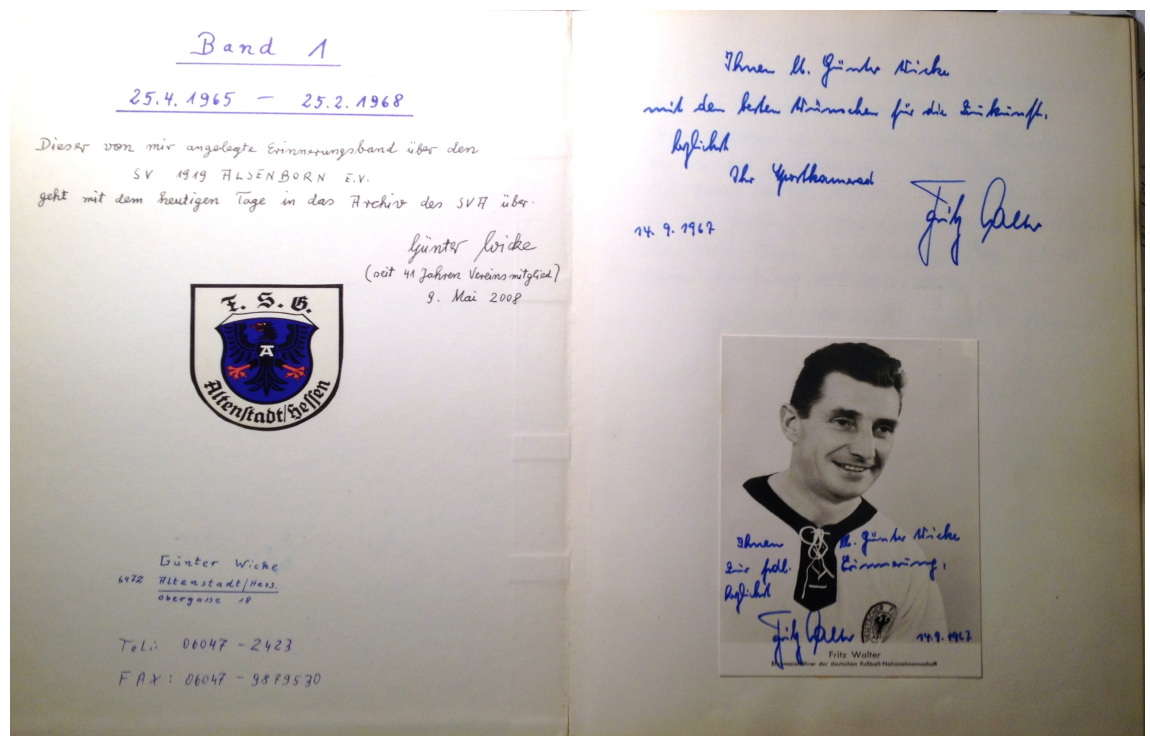 Band 1
25.4.1965 – 25.2.1968
Dieser von mir angelegte Erinnerungsband über den
SV 1919 ALSENBORN E.V.
geht mit dem heutigen Tage in das Archiv des SVA über.
Günter Wicke
(seit 41 Jahren Vereinsmitglied)
9. Mai 2008
F. S. G.
A
Altenstadt/Hessen
Günter Wicke
6472 Altenstadt/Hess.
Obergasse 18
Tel.: 06047 – 2423
FAX: 06047 – 9879530
Ihnen lb. Günter Wicke
mit den besten Wünschen für die Zukunft.
Herzlichst
Ihr Sportkamerad
Fritz Walter
14. 9. 1967
Ihnen lb. Günter Wicke
zur frdl. Erinnerung,
Herzlichst
Fritz Walter 14.9.1967
Fritz Walter
Ehrenspielführer der deutschen Fußball-Nationalmannschaft